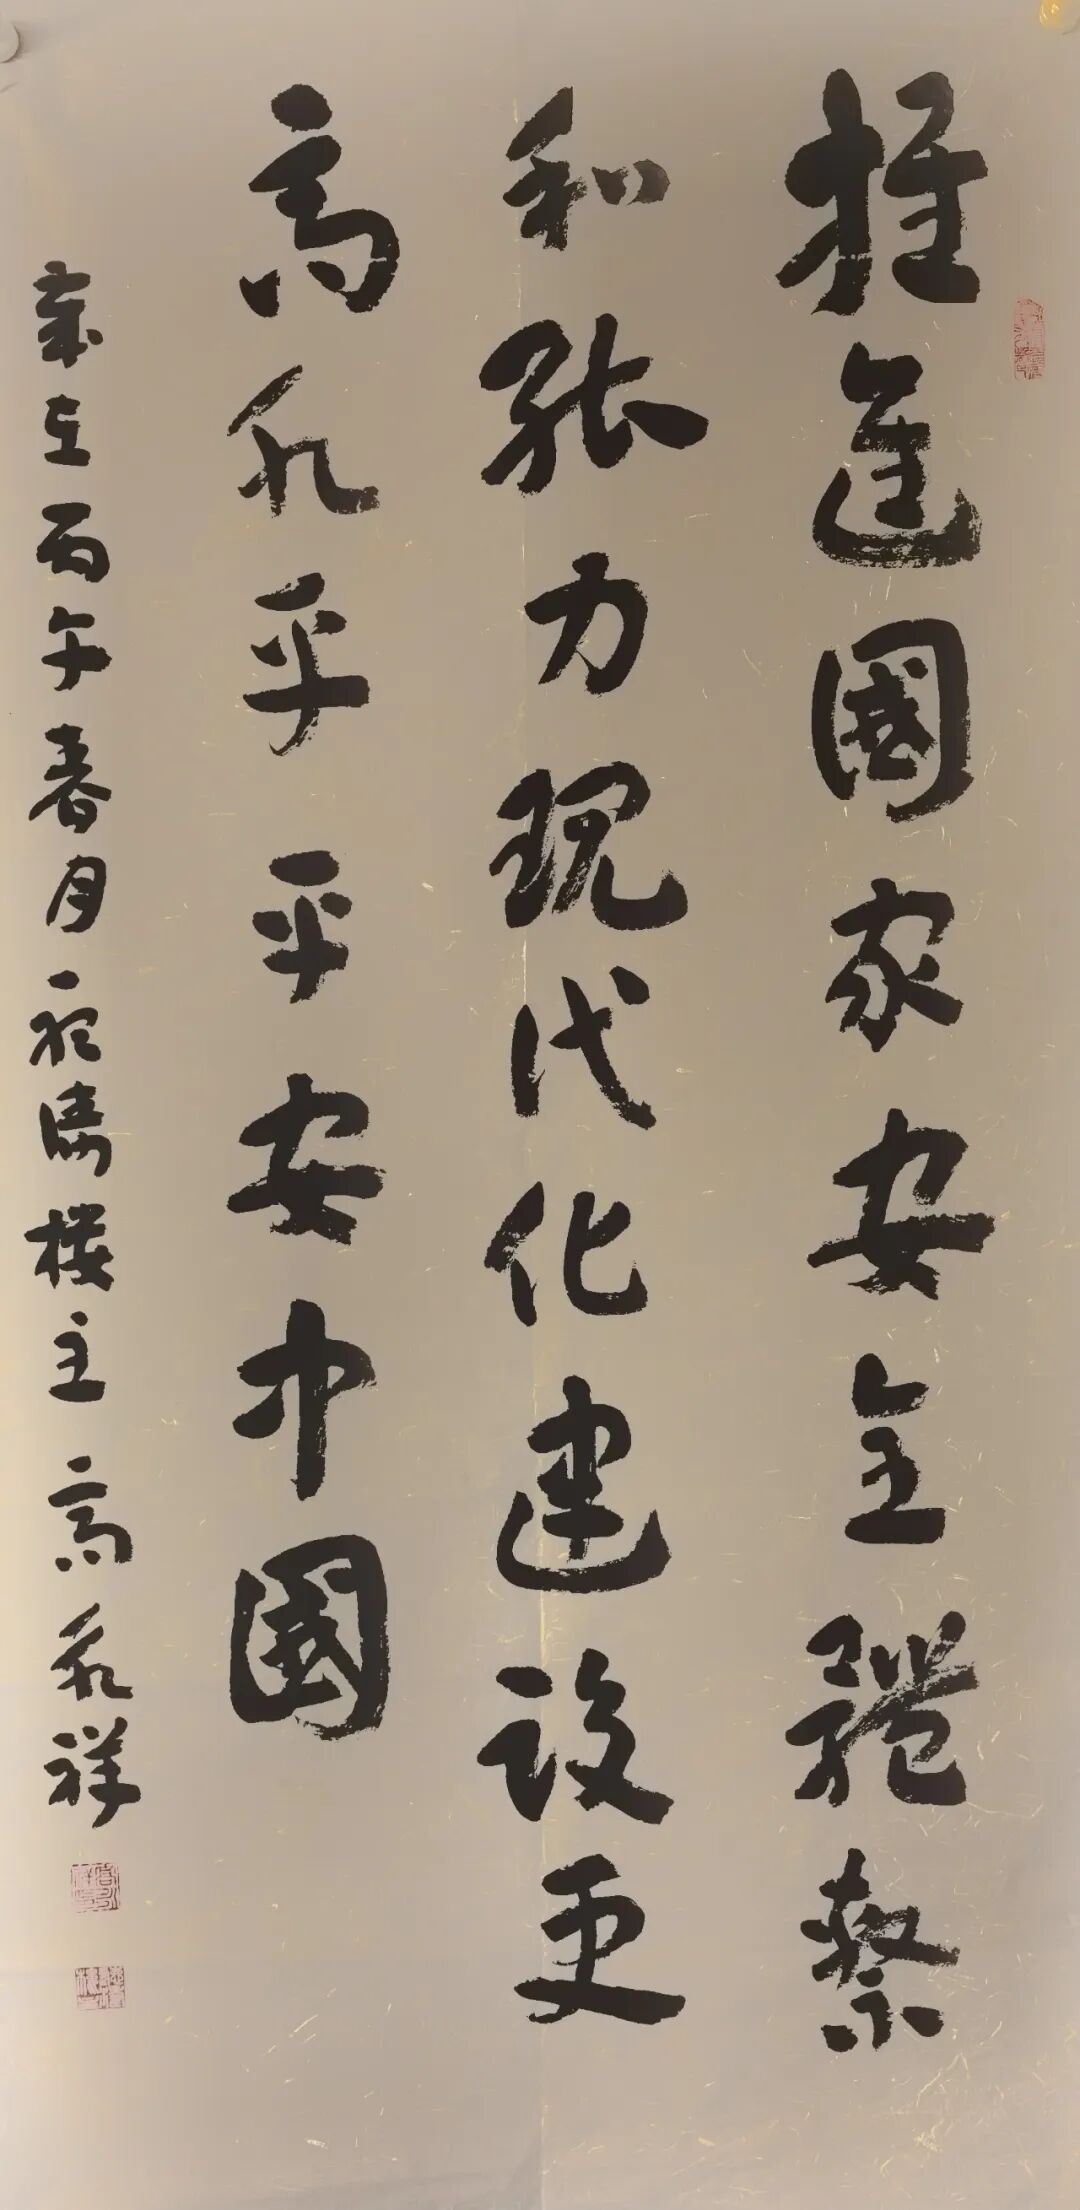 推進國家安全體繫
和能力現代化建設更
高水平平安中國
歲在丙午春月樓主高永祥